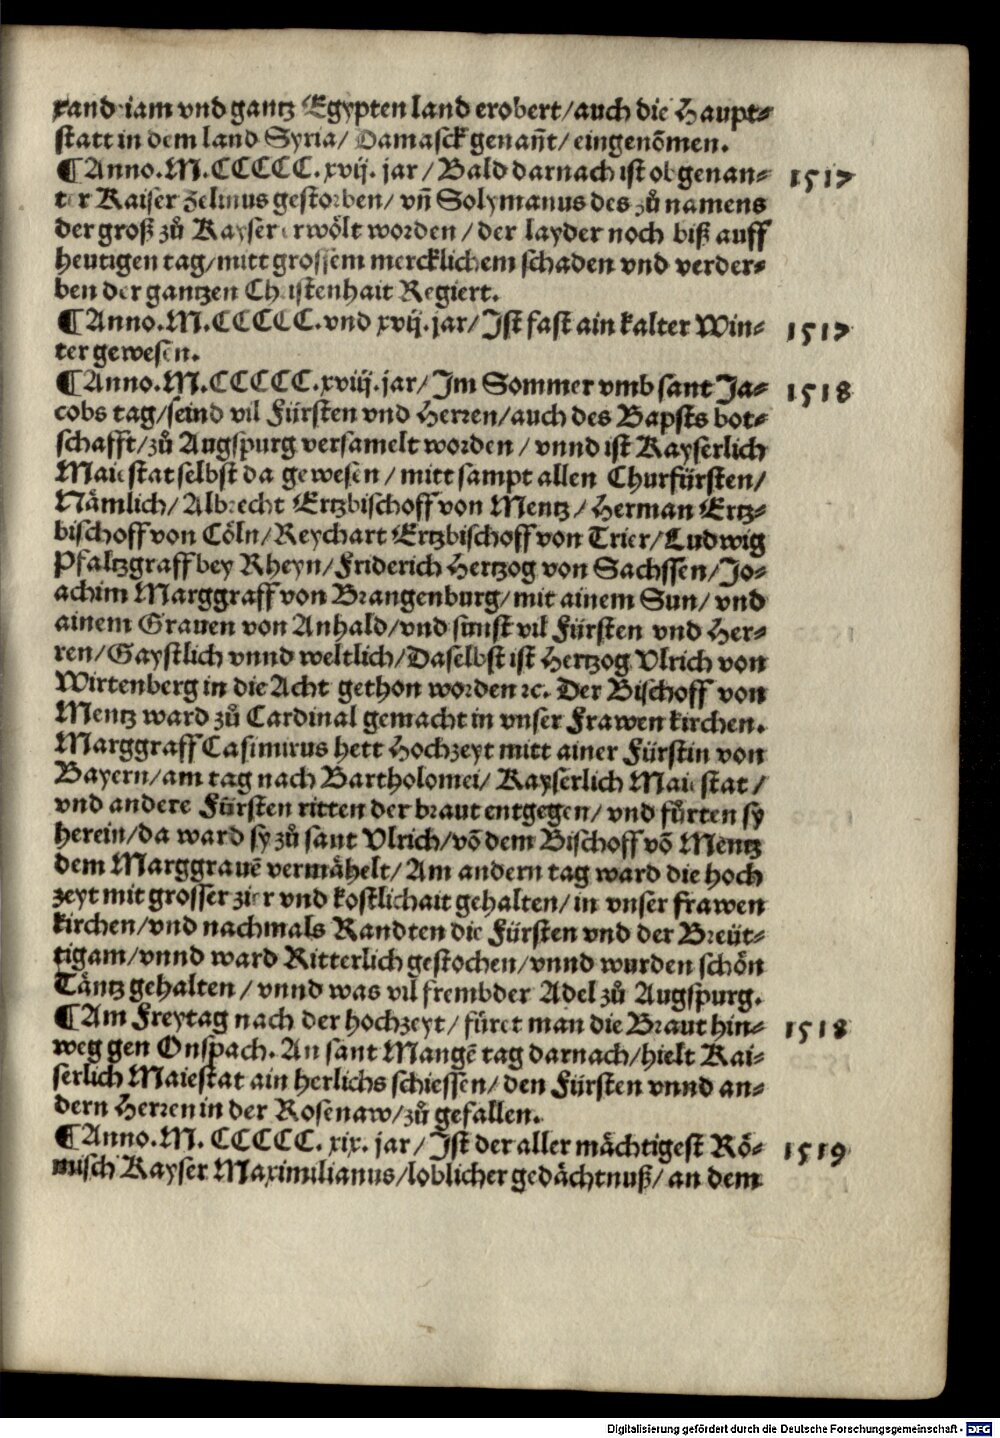 xand iam vnd gantz Egypten land erobert/auch die Haupt⸗
statt in dem land Syria/ Damasck genañt/ eingenõmen.
¶Anno.M.CCCCC.xvij. jar/ Bald darnach ist obgenan⸗ 1517
ter Kaiser Zelinus gestorben/ vñ Solymanus des zů namens
der groß zů Kayser erwölt worden/ der layder noch biß auff
heutigen tag/mitt grossem mercklichem schaden vnd verder⸗
ben der gantzen Christenhait Regiert.
¶Anno.M.CCCCC.vnd xvij.jar/ Ist fast ain kalter Win⸗ 1517
ter gewesen.
¶Anno.M.CCCCC.xviij.jar/Im Sommer vmb sant Ja⸗ 1518
cobs tag/seind vil Fürsten vnd Herren/auch des Bapsts bot⸗
schafft/zů Augspurg versamelt worden/ vnnd ist Kayserlich
Maiestat selbst da gewesen/ mitt sampt allen Churfürsten/
Nämlich/ Albrecht Ertzbischoff von Mentz/ Herman Ertz⸗
bischoff von Cöln/Reychart Ertzbischoff von Trier/Ludwig
Pfaltzgraff bey Rheyn/Friderich Hertzog von Sachssen/Jo⸗
achim Marggraff von Brangenburg/mit ainem Sun/ vnd
ainem Grauen von Anhald/vnd sunst vil Fürsten vnd Her⸗
ren/Gaystlich vnnd weltlich/Daselbst ist Hertzog Vlrich von
Wirtenberg in die Acht gethon worden ꝛc. Der Bischoff von
Mentz ward zů Cardinal gemacht in vnser Frawen kirchen.
Marggraff Casimirus hett Hochzeyt mitt ainer Fürstin von
Bayern/am tag nach Bartholomei/ Kayserlich Maiestat/
vnd andere Fürsten ritten der braut entgegen/ vnd fůrten sy
herein/da ward sy zů sant Vlrich/võ dem Bischoff võ Mentz
dem Marggrauẽ vermähelt/ Am andern tag ward die hoch
zeyt mit grosser zier vnd kostlichait gehalten/ in vnser frawen
kirchen/vnd nachmals Randten die Fürsten vnd der Breüt⸗
tigam/vnnd ward Ritterlich gestochen/vnnd wurden schön
Täntz gehalten/ vnnd was vil frembder Adel zů Augspurg.
¶Am Freytag nach der hochzeyt/ füret man die Braut hin⸗ 1518
weg gen Onspach. An sant Mangẽ tag darnach/hielt Kai⸗
serlich Maiestat ain herlichs schiessen/ den Fürsten vnnd an⸗
dern Herren in der Rosenaw/zů gefallen.
¶Anno.M. CCCCC. xix. jar/ Ist der aller mächtigest Rö⸗ 1519
misch Kayser Maximilianus/loblicher gedächtnuß/ an dem
Digitalisierung gefördert durch die Deutsche Forschungsgemeinschaft - DFG